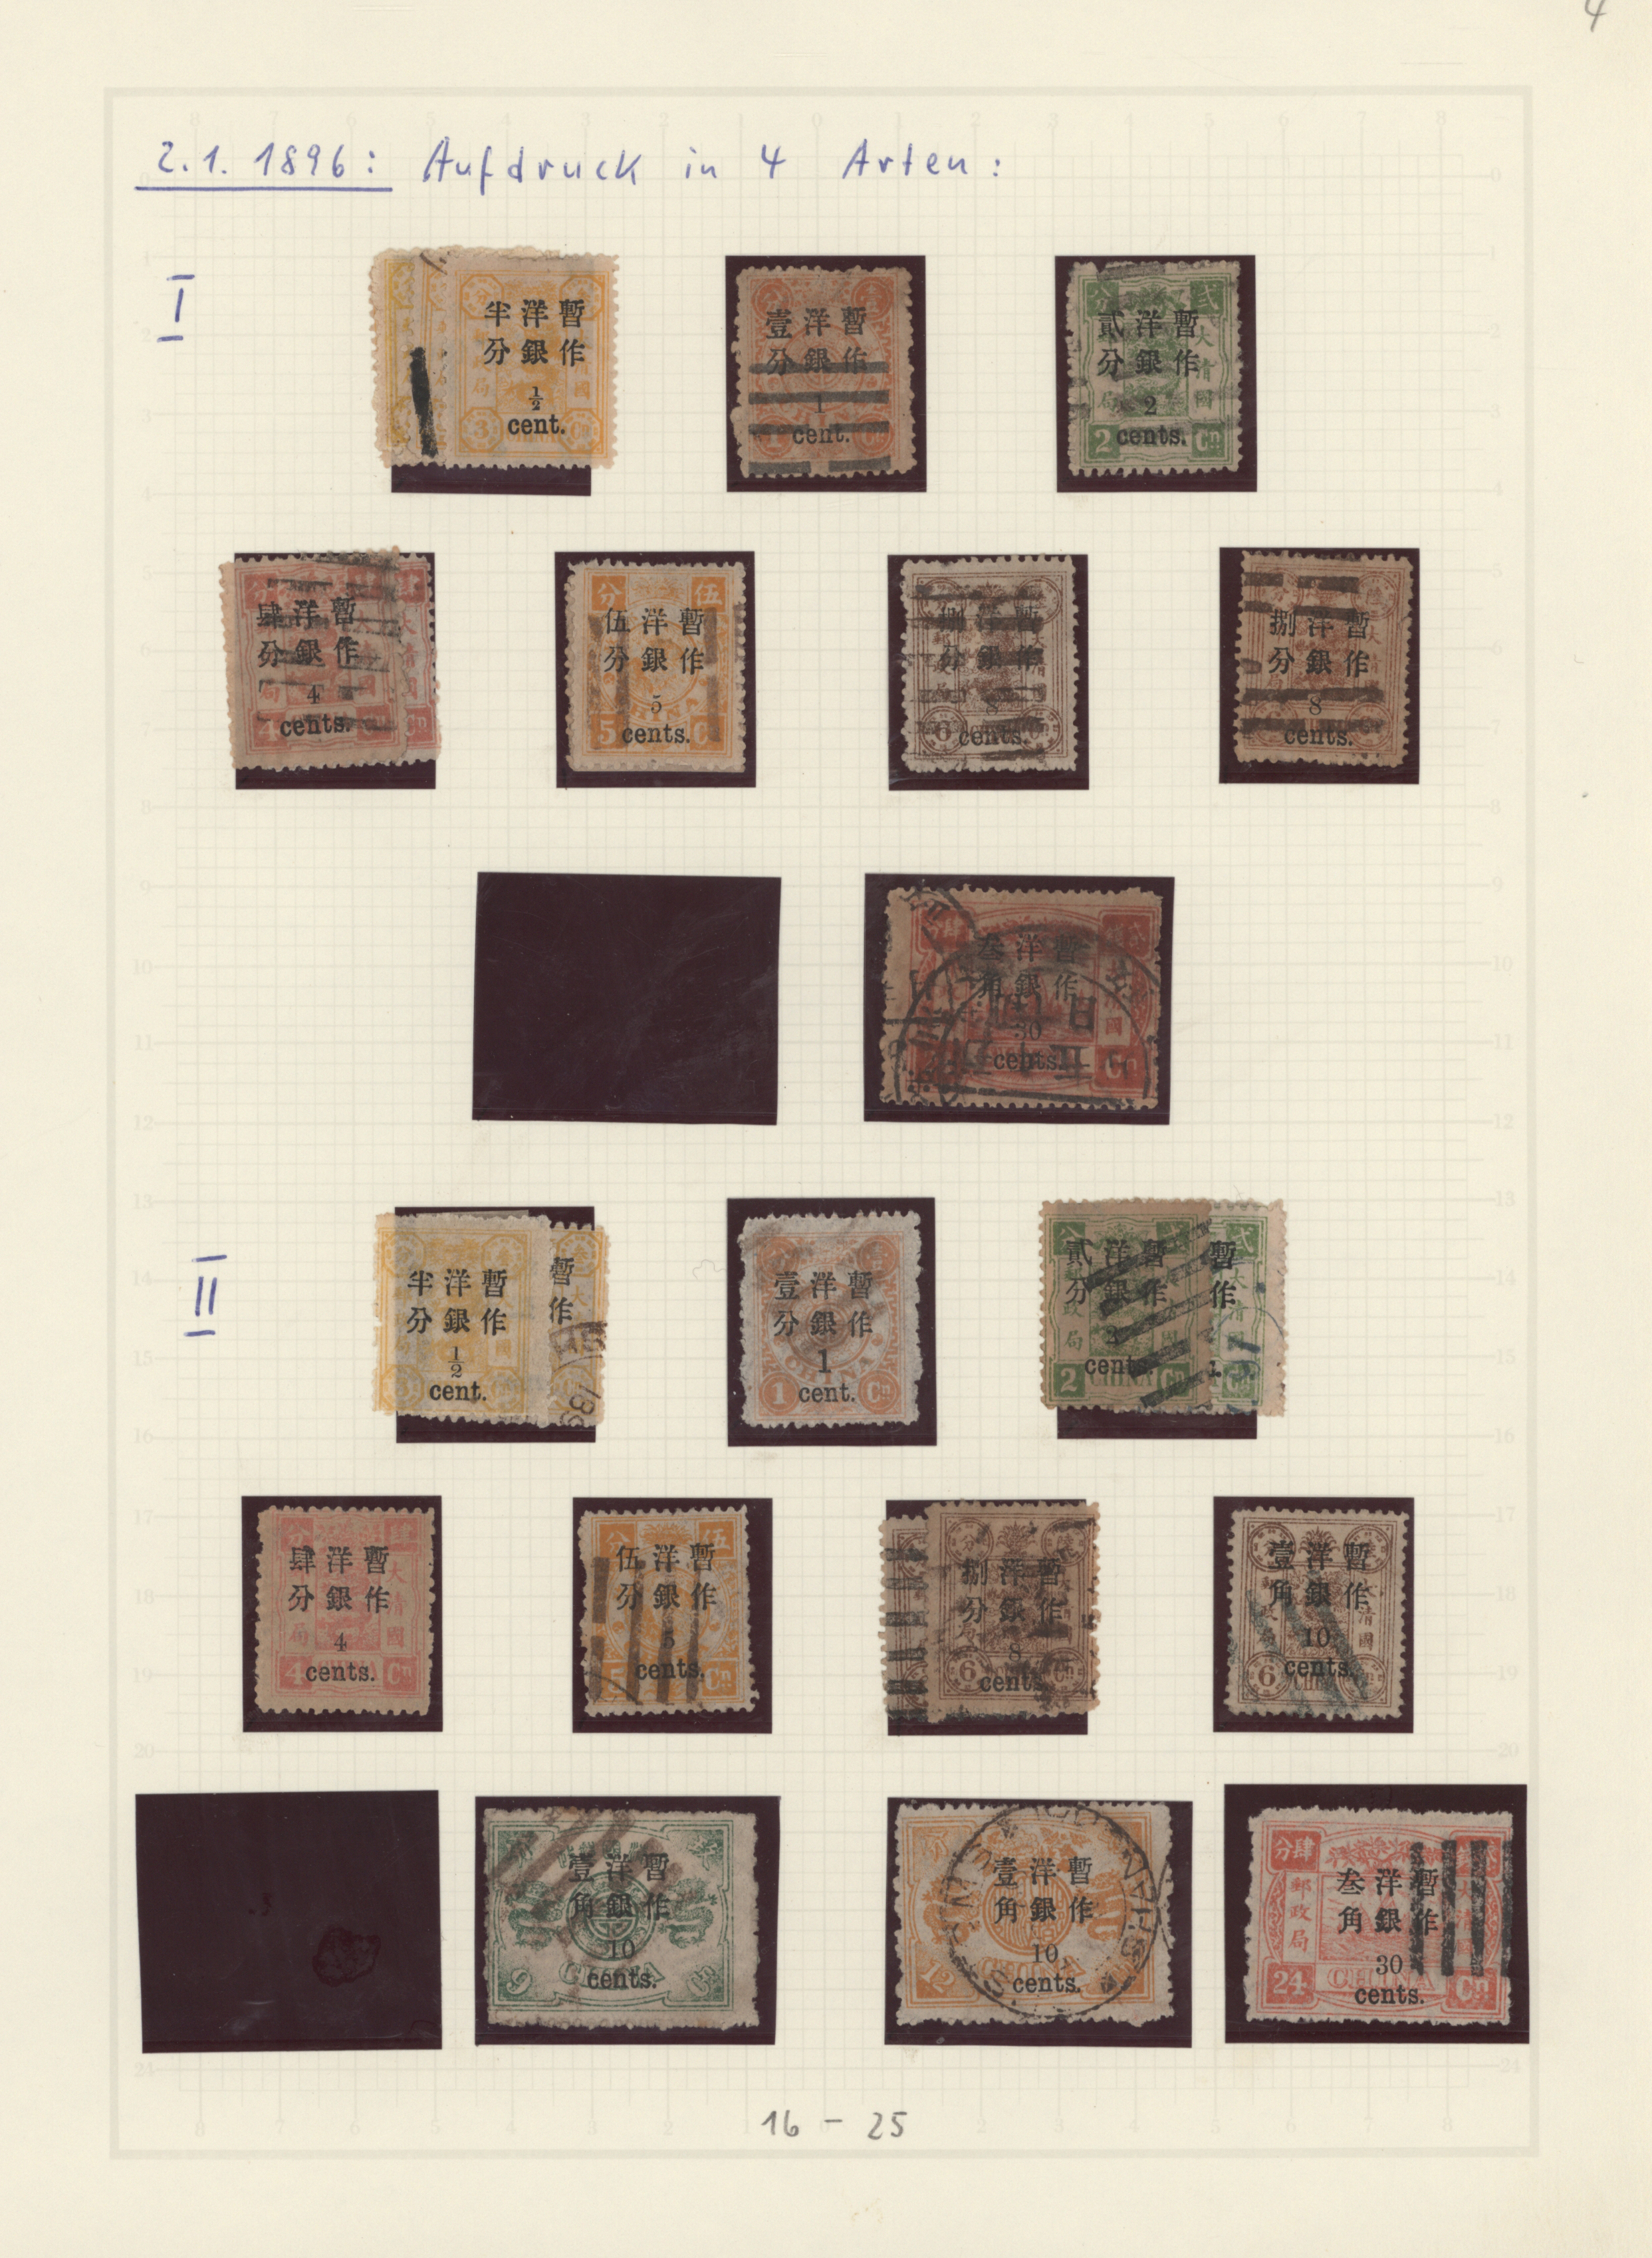 4
2.1.1896: Aufdruck in 4 Arten:
I
半洋暫
分銀作
1/2
cent.
3 CHINA Cn
壹洋暫
分銀作
1
cent.
貳洋暫
分銀作
2
cents.
2 Cn
肆洋暫
分銀作
4
cents.
伍洋暫
分銀作
5
cents.
5
捌洋暫
分銀作
8
cents.
6
捌洋暫
分銀作
8
cents.
叁洋暫
角銀作
30
cents.
Cn
II
半洋暫
分銀作
1/2
cent.
暫
作
189
壹洋暫
分銀作
1
cent.
1 Cn
貳洋暫
分銀作
cents
2 CHINA Cn
暫
作
肆洋暫
分銀作
4
cents.
4 Cn
伍洋暫
分銀作
5
cents.
5 Cn
捌洋暫
分銀作
8
cents
6 Cn
壹洋暫
角銀作
10
cents.
6
壹洋暫
角銀作
10
cents.
9 CHINA Cn
壹洋暫
角銀作
10
cents.
12 CHINA
SHANGHAI
分肆
郵政局
叁洋暫
角銀作
30
cents.
24 CHINA Cn
16 - 25